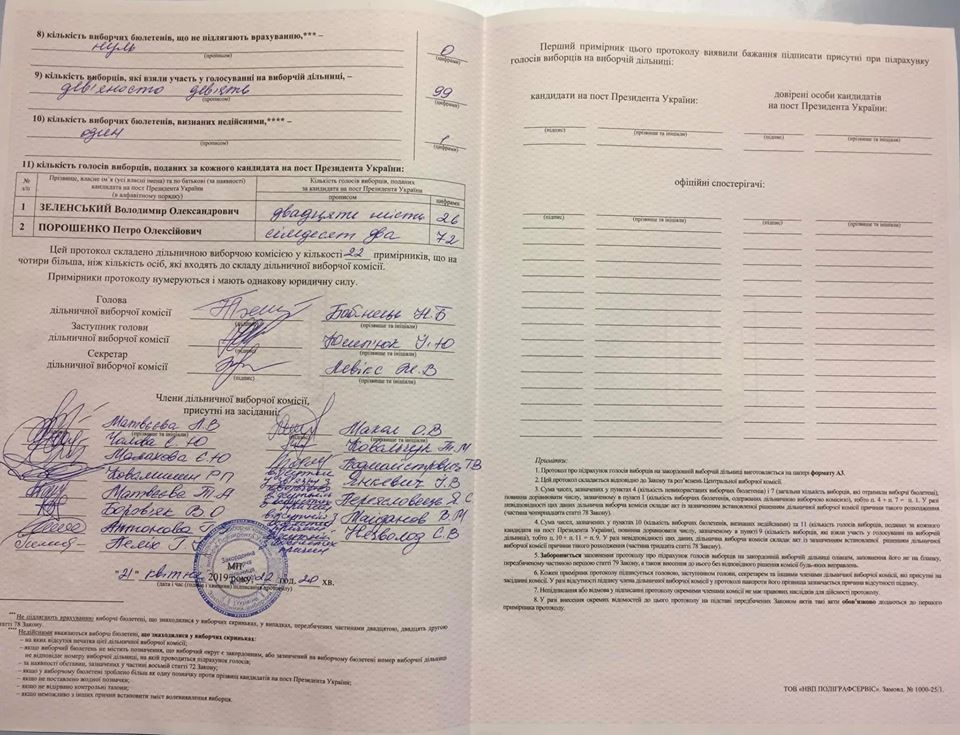 8) кількість виборчих бюлетенів, що не підлягають врахуванню,*** –
нуль 0
(прописом) (цифрами)
9) кількість виборців, які взяли участь у голосуванні на виборчій дільниці, –
дев'яносто дев'ять 99
(прописом) (цифрами)
10) кількість виборчих бюлетенів, визнаних недійсними,**** –
один 1
(прописом) (цифрами)
11) кількість голосів виборців, поданих за кожного кандидата на пост Президента України:
№ з/п
Прізвище, власне ім'я (усі власні імена) та по батькові (за наявності)
кандидата на пост Президента України
(в алфавітному порядку)
Кількість голосів виборців, поданих
за кандидата на пост Президента України
прописом цифрами
1 ЗЕЛЕНСЬКИЙ Володимир Олександрович двадцять шість 26
2 ПОРОШЕНКО Петро Олексійович сімдесят два 72
Цей протокол складено дільничною виборчою комісією у кількості 22 примірників, що на
чотири більша, ніж кількість осіб, які входять до складу дільничної виборчої комісії.
Примірники протоколу нумеруються і мають однакову юридичну силу.
Голова
дільничної виборчої комісії Н Б
(підпис) (прізвище та ініціали)
Заступник голови
дільничної виборчої комісії
(підпис) (прізвище та ініціали)
Секретар
дільничної виборчої комісії
(підпис) (прізвище та ініціали)
Члени дільничної виборчої комісії,
присутні на засіданні:
Матвєєва Л.В Махал О.В
Ковальчук Т.М
Малахова Є.Ю
Янкевич І.В
Матвєєва Т.А
Боров'як В О Майданов В.М
Антонова Г. Нєзволод С.В
МП
"21" квітня 2019 року 22 год. 20 хв.
(дата і час (години і хвилини) підписання протоколу)
*** Не підлягають врахуванню виборчі бюлетені, що знаходилися у виборчих скриньках, у випадках, передбачених частинами двадцятою, двадцять другою
статті 78 Закону.
**** Недійсними вважаються виборчі бюлетені, що знаходилися у виборчих скриньках:
– на яких відсутня печатка цієї дільничної виборчої комісії;
– якщо виборчий бюлетень не містить позначення, що виборчий округ є закордонним, або зазначений на виборчому бюлетені номер виборчої дільниці
не відповідає номеру виборчої дільниці, на якій проводиться підрахунок голосів;
– за наявності обставин, зазначених у частині восьмій статті 72 Закону;
– якщо у виборчому бюлетені зроблено більш як одну позначку проти прізвищ кандидатів на пост Президента України;
– якщо не поставлено жодної позначки;
– якщо не відірвано контрольні талони;
– якщо неможливо з інших причин встановити зміст волевиявлення виборця.
Перший примірник цього протоколу виявили бажання підписати присутні при підрахунку
голосів виборців на виборчій дільниці:
кандидати на пост Президента України: довірені особи кандидатів
на пост Президента України:
(підпис) (прізвище та ініціали) (підпис) (прізвище та ініціали)
офіційні спостерігачі:
(підпис) (прізвище та ініціали) (підпис) (прізвище та ініціали)
Примітки:
1. Протокол про підрахунок голосів виборців на закордонній виборчій дільниці виготовляється на папері формату А3.
2. Цей протокол складається відповідно до Закону та роз'яснень Центральної виборчої комісії.
3. Сума чисел, зазначених у пунктах 4 (кількість невикористаних виборчих бюлетенів) і 7 (загальна кількість виборців, які отримали виборчі бюлетені),
повинна дорівнювати числу, зазначеному в пункті 1 (кількість виборчих бюлетенів, одержаних дільничною виборчою комісією), тобто п. 4 + п. 7 = п. 1. У разі
невідповідності цих даних дільнична виборча комісія складає акт із зазначенням встановленої рішенням дільничної виборчої комісії причини такого розходження
(частина чотирнадцята статті 78 Закону).
4. Сума чисел, зазначених у пунктах 10 (кількість виборчих бюлетенів, визнаних недійсними) та 11 (кількість голосів виборців, поданих за кожного
кандидата на пост Президента України), повинна дорівнювати числу, зазначеному в пункті 9 (кількість виборців, які взяли участь у голосуванні на виборчій
дільниці), тобто п. 10 + п. 11 = п. 9. У разі невідповідності цих даних дільнична виборча комісія складає акт із зазначенням встановленої рішенням дільничної
виборчої комісії причини такого розходження (частина тридцята статті 78 Закону).
5. Забороняється заповнення протоколу про підрахунок голосів виборців на закордонній виборчій дільниці олівцем, заповнення його не на бланку,
передбаченому частиною першою статті 79 Закону, а також внесення до нього без відповідного рішення комісії будь-яких виправлень.
6. Кожен примірник протоколу підписується головою, заступником голови, секретарем та іншими членами дільничної виборчої комісії, які присутні на
засіданні комісії. У разі відсутності підпису члена дільничної виборчої комісії у протоколі навпроти його прізвища зазначається причина відсутності підпису.
7. Непідписання або відмова у підписанні протоколу окремими членами комісії не має правових наслідків для дійсності протоколу.
8. У разі внесення окремих відомостей до цього протоколу на підставі передбачених Законом актів такі акти обов'язково додаються до першого
примірника протоколу.
ТОВ «НВП ПОЛІГРАФСЕРВІС». Замовл. № 1000-25/1.